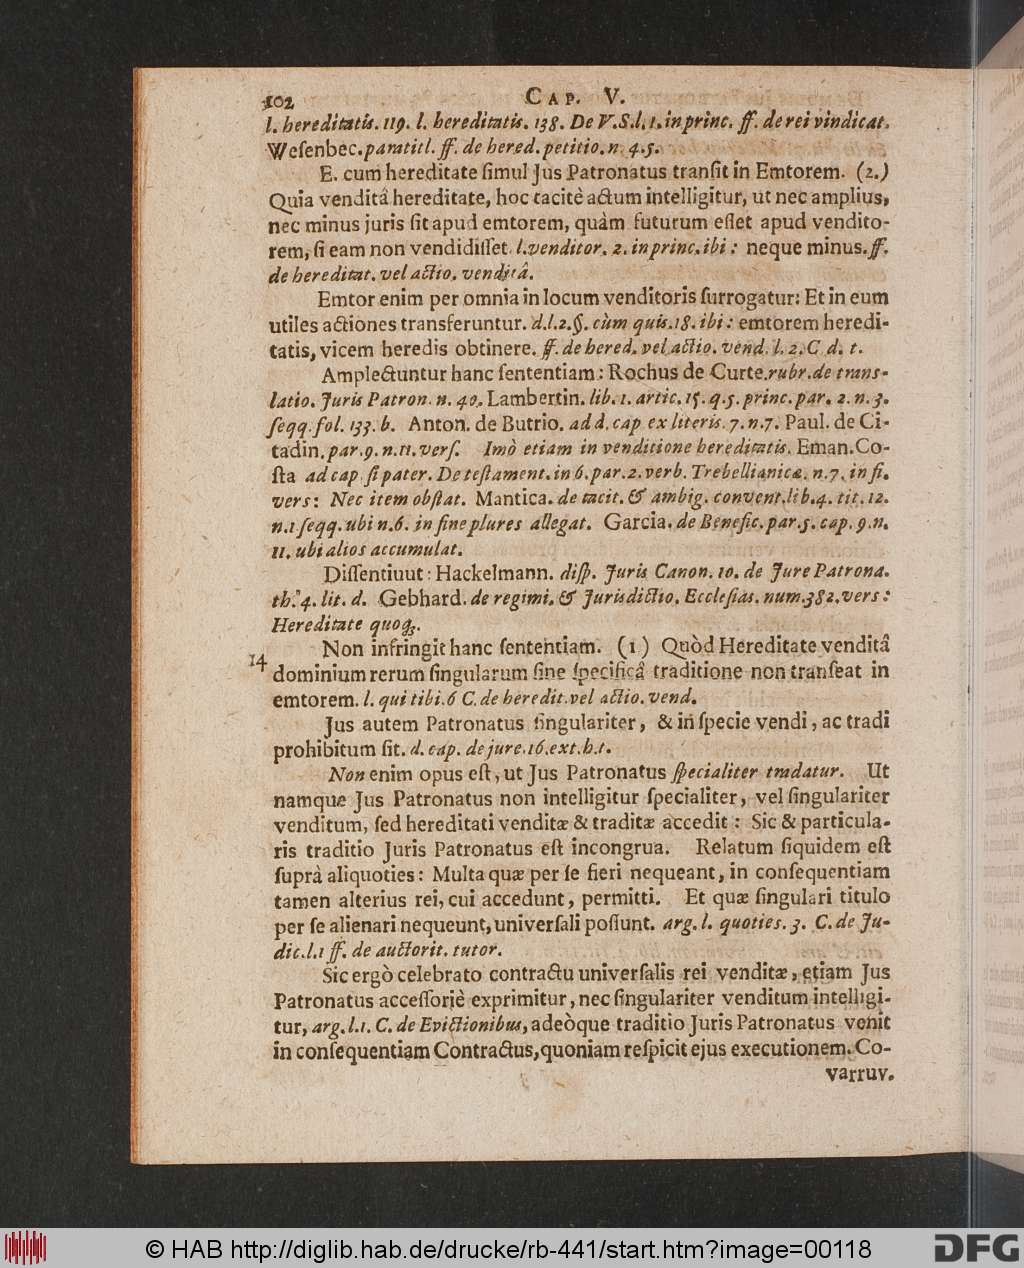 102
CAP. V.
l. hereditatis. 119. l. hereditatis. 138. De V.S.l. 1. in princ. ff. de rei vindicat.
Weſenbec. paratitl. ff. de hered. petitio. n. 4. 5.
E. cum hereditate ſimul Jus Patronatus tranſit in Emtorem. (2.)
Quia venditâ hereditate, hoc tacitè actum intelligitur, ut nec amplius,
nec minus juris ſit apud emtorem, quàm futurum eſſet apud vendito-
rem, ſi eam non vendidiſſet. l. venditor. 2. in princ. ibi: neque minus. ff.
de hereditat. vel actio. venditâ.
Emtor enim per omnia in locum venditoris ſurrogatur: Et in eum
utiles actiones transferuntur. d.l.2.§. cùm quis. 18. ibi: emtorem heredi-
tatis, vicem heredis obtinere. ff. de hered. vel actio. vend. l. 2. C d. t.
Amplectuntur hanc ſententiam: Rochus de Curte. rubr. de trans-
latio. Juris Patron. n. 40. Lambertin. lib. 1. artic. 15. q. 5. princ. par. 2. n. 3.
ſeqq. fol. 133. b. Anton. de Butrio. ad d. cap ex literis. 7. n. 7. Paul. de Ci-
tadin. par. 9. n. 11. verſ. Imò etiam in venditione hereditatis. Eman. Co-
ſta ad cap. ſi pater. De teſtament. in 6. par. 2. verb. Trebellianicæ. n. 7. in fi.
vers: Nec item obſtat. Mantica. de tacit. & ambig. convent. lib. 4. tit. 12.
n. 1 ſeqq. ubi n. 6. in fine plures allegat. Garcia. de Benefic. par. 5. cap. 9. n.
11. ubi alios accumulat.
Diſſentiuut: Hackelmann. diſp. Juris Canon. 10. de Jure Patrona.
th. 4. lit. d. Gebhard. de regimi. & Jurisdictio. Eccleſias. num. 382. vers:
Hereditate quoq;.
14
Non infringit hanc ſententiam. (1) Quòd Hereditate venditâ
dominium rerum ſingularum ſine ſpecificâ traditione non tranſeat in
emtorem. l. qui tibi. 6 C. de heredit. vel actio. vend.
Jus autem Patronatus ſingulariter, & in ſpecie vendi, ac tradi
prohibitum ſit. d. cap. de jure. 16. ext. h. t.
Non enim opus eſt, ut Jus Patronatus ſpecialiter tradatur. Ut
namque Jus Patronatus non intelligitur ſpecialiter, vel ſingulariter
venditum, ſed hereditati venditæ & traditæ accedit: Sic & particula-
ris traditio Juris Patronatus eſt incongrua. Relatum ſiquidem eſt
ſuprà aliquoties: Multa quæ per ſe fieri nequeant, in conſequentiam
tamen alterius rei, cui accedunt, permitti. Et quæ ſingulari titulo
per ſe alienari nequeunt, univerſali poſſunt. arg. l. quoties. 3. C. de Ju-
dic. l. 1 ff. de auctorit. tutor.
Sic ergò celebrato contractu univerſalis rei venditæ, etiam Jus
Patronatus acceſſoriè exprimitur, nec ſingulariter venditum intelligi-
tur, arg. l. 1. C. de Evictionibus, adeòque traditio Juris Patronatus venit
in conſequentiam Contractus, quoniam reſpicit ejus executionem. Co-
varruv.
© HAB http://diglib.hab.de/drucke/rb-441/start.htm?image=00118
DFG